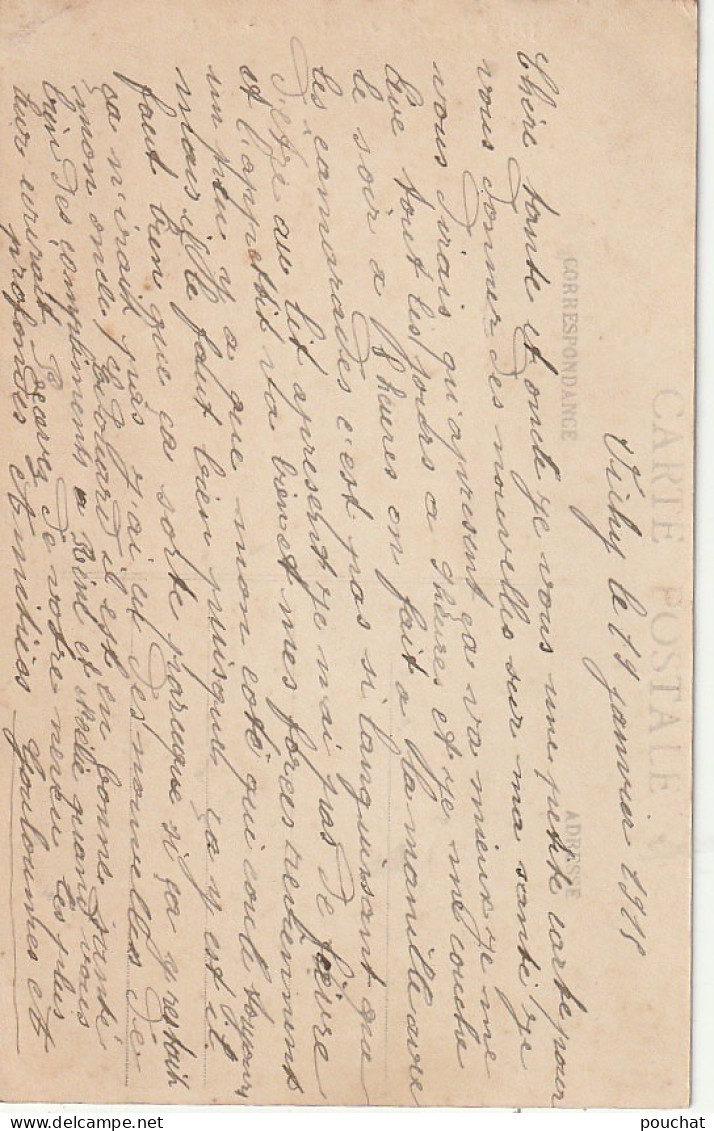 CARTE POSTALE
CORRESPONDANCE
ADRESSE
Vichy le 19 janvier 1915
Chère tante et oncle je vous une petite carte pour
vous donner des nouvelles sur ma santé je
vous dirais qu'apresent ça va mieux je me
lève tout les jours a 9 heures et je me couche
le soir a 8 heures on fait a la manille avec
les camarades c'est pas si languissant que
d'etre au lit apresent je n'ai pas de fièvre
et l'appetit va bien et mes forces reviennent
un peu y a que mon coté qui coule toujours
mais il le faut bien puisque ça y est il
faut bien que ça sorte parceque si ça y restait
ça n'irait pas j'ai eut des nouvelles de
mon oncle Edouard il est en bonne santé
bien des compliments a et quand vous
leur ecrirait Recevez de votre neveu les plus
profondes Amitiés et
pouchat